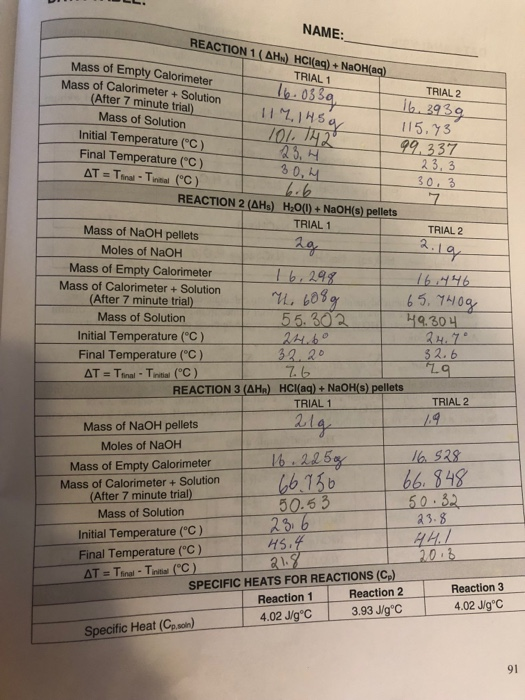 NAME:
REACTION 1 ( ΔHN) HCl(aq) + NaOH(aq)
TRIAL 1 TRIAL 2
Mass of Empty Calorimeter 16.033g 16.393g
Mass of Calorimeter + Solution (After 7 minute trial) 117.145g 115.73
Mass of Solution 101.142 99.337
Initial Temperature (°C) 23.4 23.3
Final Temperature (°C) 30.4 30.3
ΔT = Tfinal - Tinitial (°C) 6.6 7
REACTION 2 (ΔHs) H2O(l) + NaOH(s) pellets
TRIAL 1 TRIAL 2
Mass of NaOH pellets 2g 2.1g
Moles of NaOH
Mass of Empty Calorimeter 16.298 16.446
Mass of Calorimeter + Solution (After 7 minute trial) 71.608g 65.740g
Mass of Solution 55.302 49.304
Initial Temperature (°C) 24.6° 24.7°
Final Temperature (°C) 32.20 32.6
ΔT = Tfinal - Tinitial (°C) 7.6 7.9
REACTION 3 (ΔHR) HCl(aq) + NaOH(s) pellets
TRIAL 1 TRIAL 2
Mass of NaOH pellets 2.1g 1.9
Moles of NaOH
Mass of Empty Calorimeter 16.225g 16.528
Mass of Calorimeter + Solution (After 7 minute trial) 66.756 66.848
Mass of Solution 50.53 50.32
Initial Temperature (°C) 23.6 23.8
Final Temperature (°C) 45.4 44.1
ΔT = Tfinal - Tinitial (°C) 21.8 20.3
SPECIFIC HEATS FOR REACTIONS (Cp)
Reaction 1 Reaction 2 Reaction 3
Specific Heat (Cp,soln) 4.02 J/g°C 3.93 J/g°C 4.02 J/g°C
91